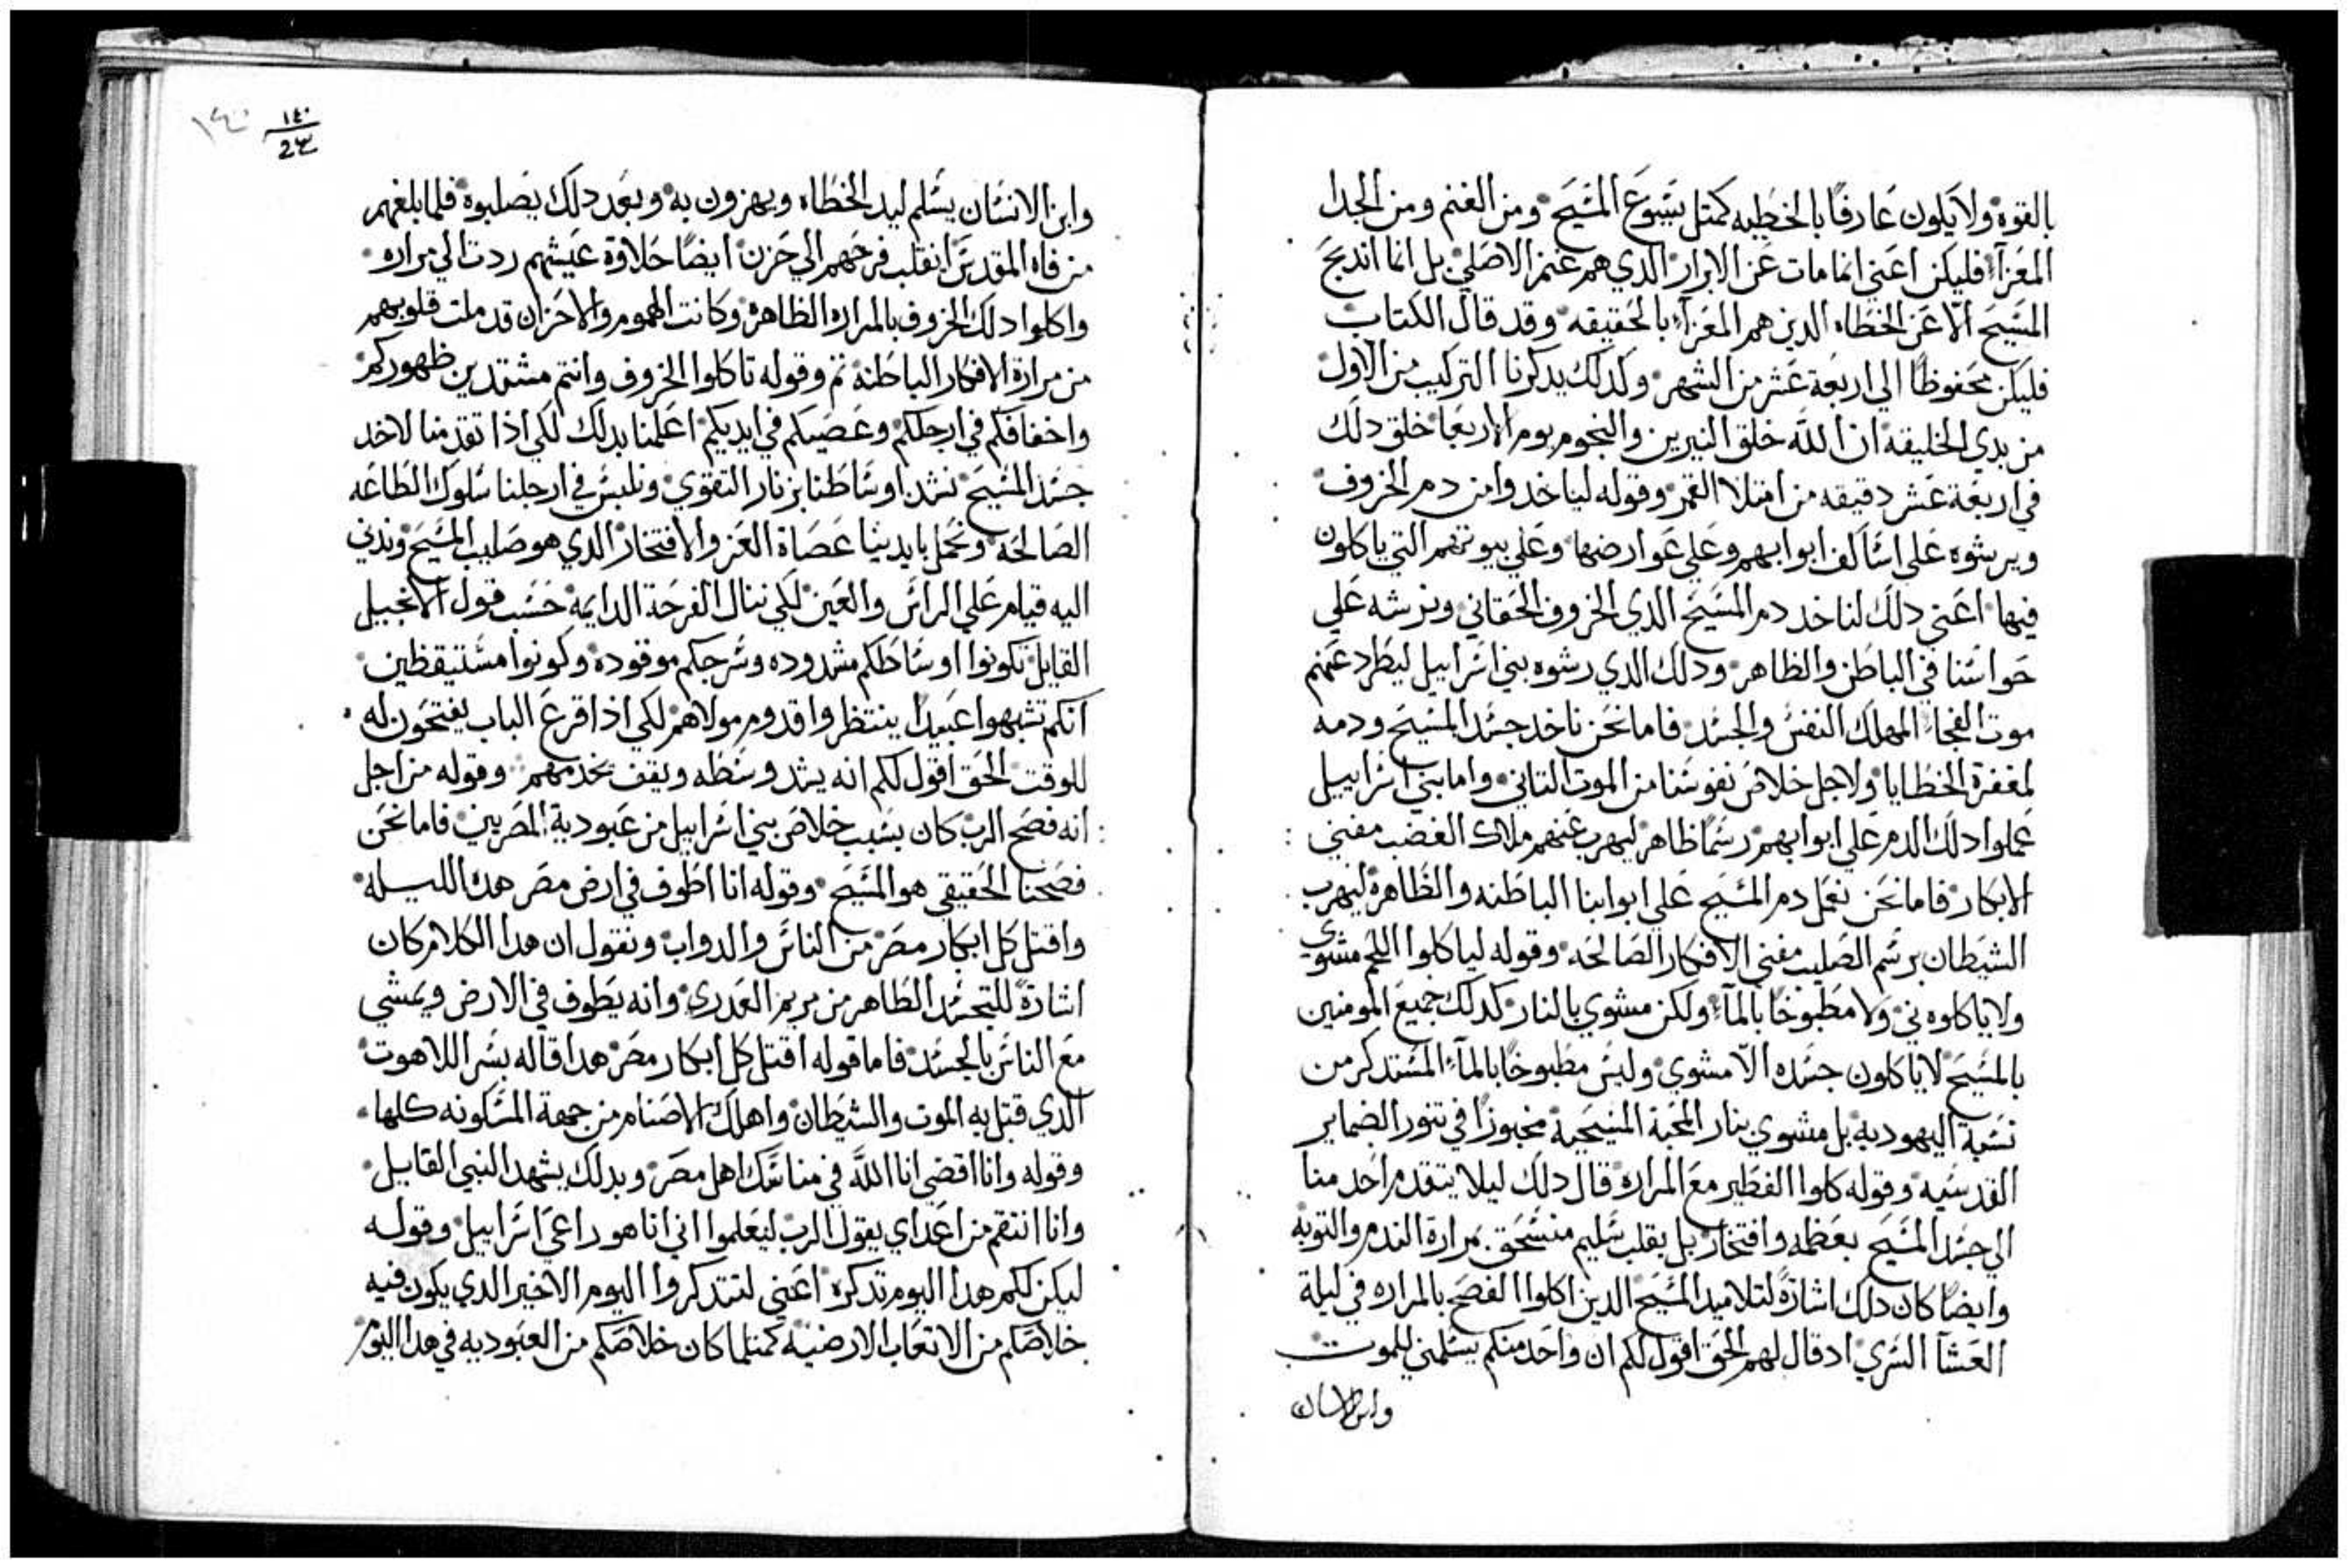 بالقوه ولا يكون عارفًا بالخطيه كمتل يسوع المسيح ومن الغنم ومن الجدا
المعزآ فليكن اعني انما مات عن الابرار الدي هم غنم الاصلي بل انما اندبح
المسيح الّا عن الخطاه الدين هم المعزآ بالحقيقه وقد قال الكتاب
فليكن محفوظًا الي اربعة عشر من الشهر وكدلك يدكرنا التركيب من الاول
من بدي الخليقه ان اللَّه خلق النيرين والنجوم يوم الاربعا خلق دلك
في اربعة عشر دقيقه من امتلا القمر وقوله لياخدوا من دم الخروف
ويرشوه علي اساكف ابوابهم وعلي عوارضها وعلي بيوتهم التي ياكلون
فيها اعني دلك لناخد دم المسيح الدي الخروف الحقاني ونرشه علي
حواسنا في الباطن والظاهر ودلك الدي رشوه بني اسراييل ليطرد عنهم
موت الفجاء المهلك النفس والجسد فاما نحن ناخد جسد المسيح ودمه
لمغفرة الخطايا ولاجل خلاص نفوسنا من الموت التاني واما بني اسراييل
عملوا دلك الدم علي ابوابهم رسمًا ظاهر ليهرب عنهم ملاك الغضب مفني
الابكار فاما نحن نعمل دم المسيح علي ابوابنا الباطنه والظاهره ليهرب
الشيطان برسم الصليب مفني الافكار الصالحه وقوله لياكلوا اللحم مشوي
ولا ياكلوه ني ولا مطبوخًا بالمآء ولكن مشوي بالنار كدلك جميع المومنين
بالمسيح لا ياكلون جسده الّا مشوي وليس مطبوخًا بالمآء المستدكر من
نسبة اليهوديه بل مشوي بنار المحبة المسيحية مخبوزًا في تنور الضماير
القدسيه وقوله كلوا الفطير مع المراره قال دلك ليلا يتقدم احد منا
الي جسد المسيح بعظمه وافتخار بل بقلب سليم منسحق بمرارة الندم والتوبه
وايضًا كان دلك اشارةً لتلاميد المسيح الدين اكلوا الفصح بالمراره في ليلة
العشآ السري اد قال لهم الحق اقول لكم ان واحد منكم يسلمني للموت
وابن الانسان
١٤٠
١٤٠
24
وابن الانسان يسلم ليد الخطاه ويهزون به وبعد دلك يصلبوه فلما بلغهم
من فاه المقدس انقلب فرحهم الي حزن ايضًا حلاوة عيشهم ردت الي مراره
واكلوا دلك الخروف بالمراره الظاهره وكانت الهموم والاحزان قد ملت قلوبهم
من مرارة الافكار الباطنه تم وقوله تاكلوا الخروف وانتم مشتدين ظهوركم
واخفافكم في ارجلكم وعصيكم في ايديكم اعلمنا بدلك لكي اذا تقدمنا لاخد
جسد المسيح نشد اوساطنا بزنار التقوي ونلبس في ارجلنا سلوك الطاعه
الصالحه ونحمل بايدينا عصاة العز والافتخار الدي هو صليب المسيح وندني
اليه قيام علي الراس والعين لكي ننال الفرحة الدايمه حسب قول الانجيل
القايل تكونوا اوساطكم مشدوده وسرجكم موقوده وكونوا مستيقظين
انكم تشبهوا عبيدًا ينتظروا قدوم مولاهم لكي اذا قرع الباب يفتحون له
للوقت الحق اقول لكم انه يشد وسطه ويقف يخدمهم وقوله من اجل
انه فصح الرب كان بسبب خلاص بني اسراييل من عبودية المصريين فاما نحن
فصحنا الحقيقي هو المسيح وقوله انا اطوف في ارض مصر هده الليله
واقتل كل ابكار مصر من الناس والدواب ونقول ان هدا الكلام كان
اشارةً للتجسد الظاهر من مريم العدري وانه يطوف في الارض ويمشي
مع الناس بالجسد فاما قوله اقتل كل ابكار مصر هدا قاله بسر اللاهوت
الدي قبل به الموت والشيطان واهلك الاصنام من جهة المسكونه كلها
وقوله وانا اقضي انا اللَّه في مناسك اهل مصر وبدلك يشهد النبي القايل
وانا انتقم من اعداي يقول الرب ليعلموا اني انا هو راعي اسراييل وقوله
ليكن لكم هدا اليوم تدكره اعني لتتدكروا اليوم الاخير الدي يكون فيه
خلاصكم من الاتعاب الارضيه كمتلما كان خلاصكم من العبوديه في هدا اليوم